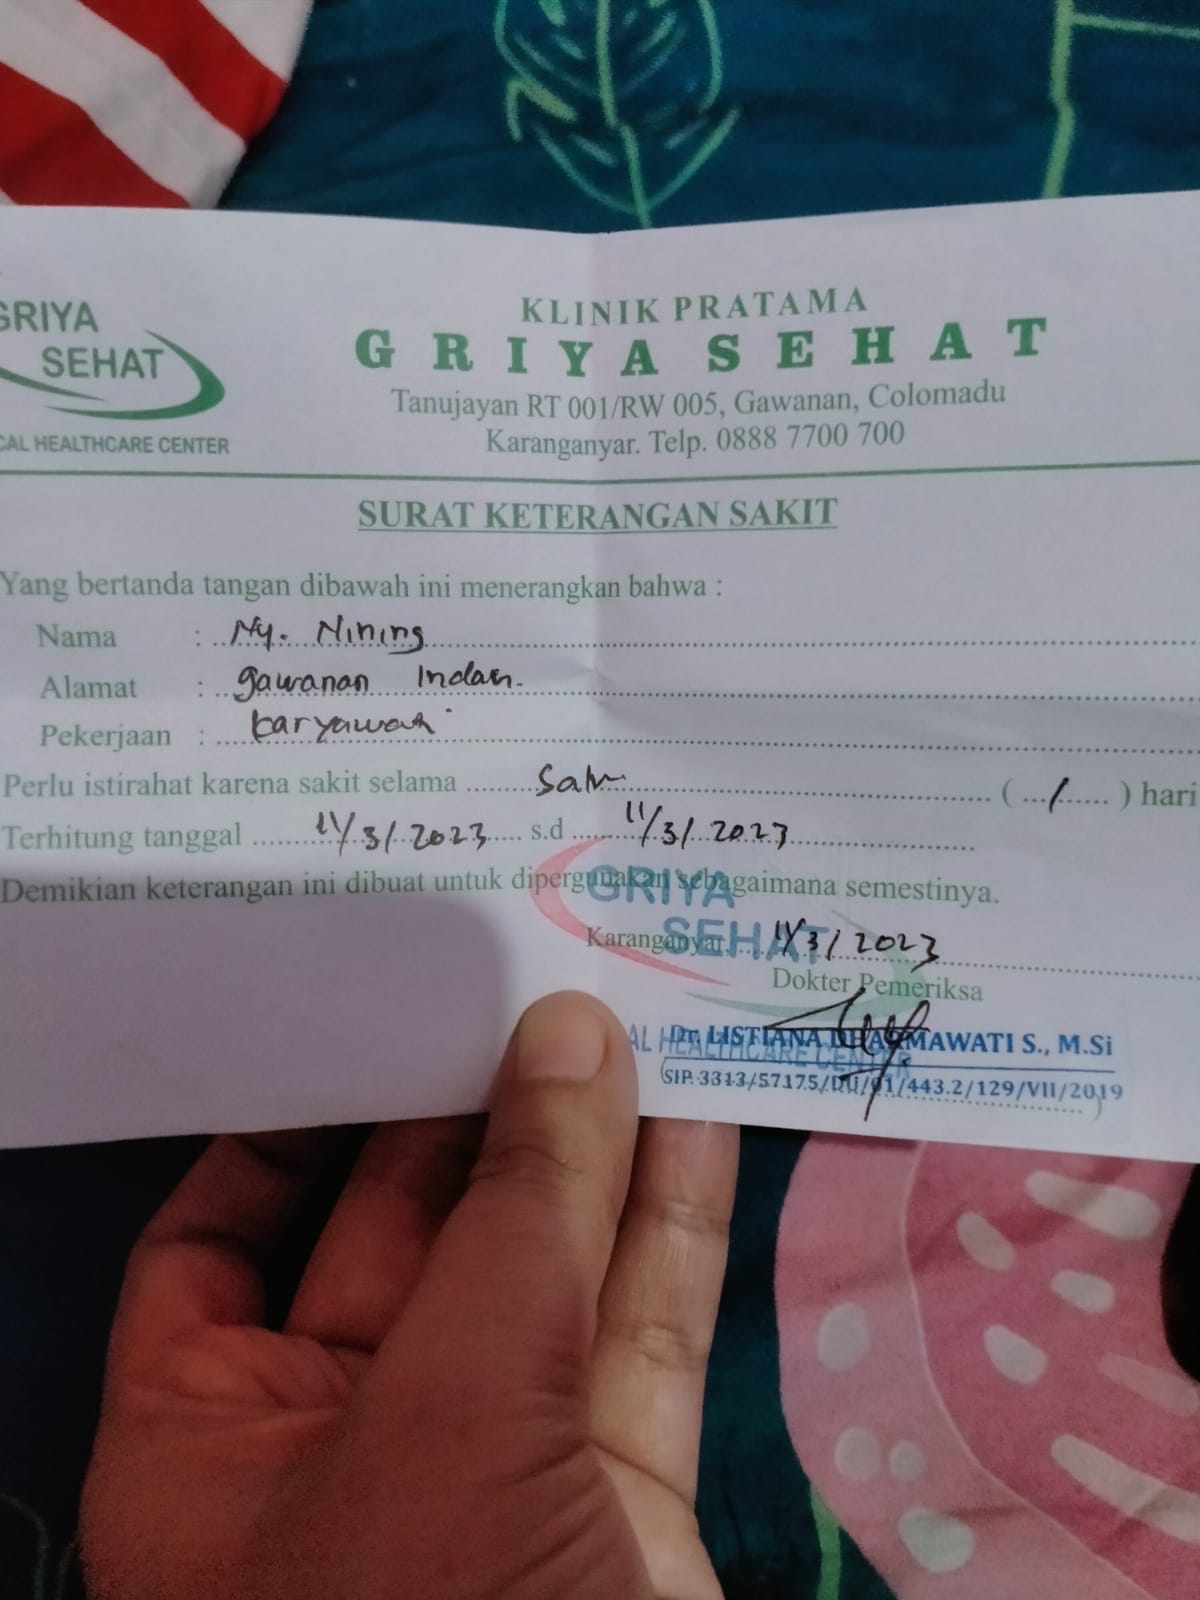 GRIYA
SEHAT
CAL HEALTHCARE CENTER
KLINIK PRATAMA
GRIYA SEHAT
Tanujayan RT 001/RW 005, Gawanan, Colomadu
Karanganyar. Telp. 0888 7700 700
SURAT KETERANGAN SAKIT
Yang bertanda tangan dibawah ini menerangkan bahwa :
Nama : Ny. Nining
Alamat : gawanan Indah.
Pekerjaan : karyawati
Perlu istirahat karena sakit selama Satu ( 1 ) hari
Terhitung tanggal 11/3/2023 s.d 11/3/2023
Demikian keterangan ini dibuat untuk dipergunakan sebagaimana semestinya.
GRIYA
SEHAT
Karanganyar, 11/3/2023
Dokter Pemeriksa
AL HEALTHCARE CENTER
Dr. LISTIANA DHARMAWATI S., M.Si
SIP. 3313/57175/DU/01/443.2/129/VII/2019